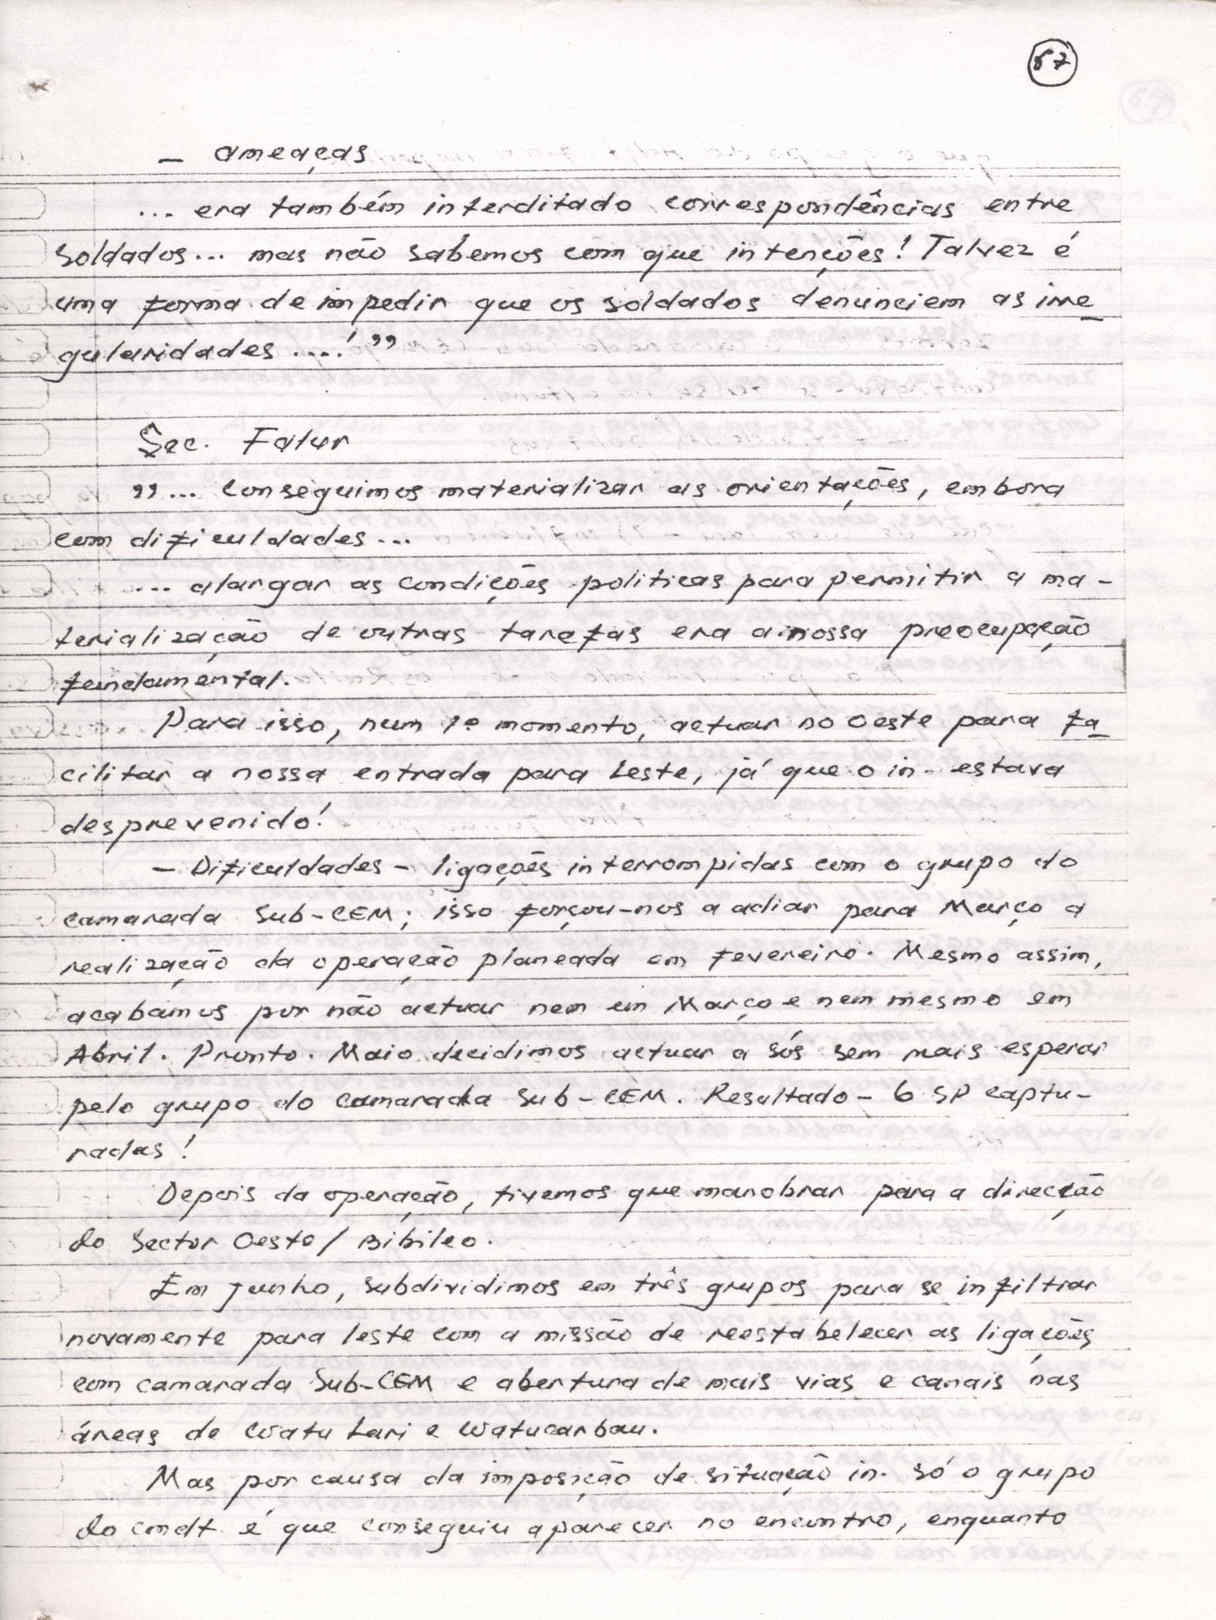 67
- ameaças
... era também interditado correspondências entre
soldados... mas não sabemos com que intenções! Talvez é
uma forma de impedir que os soldados denunciem as irre
gularidades ....! ”
Sec. Falur
”... conseguimos materializar as orientações, embora
com dificuldades...
... alargar as condições politicas para permitir a ma-
terialização de outras tarefas era a nossa preocupação
fundamental.
Para isso, num 1º momento, actuar no oeste para fa
cilitar a nossa entrada para Leste, já que o in. estava
desprevenido!
- Dificuldades - ligações interrompidas com o grupo do
camarada Sub-CEM; isso forçou-nos a adiar para Março a
realização da operação planeada em fevereiro. Mesmo assim,
acabamos por não actuar nem em Março e nem mesmo em
Abril. Pronto. Maio decidimos actuar a sós sem mais esperar
pelo grupo do camarada Sub-CEM. Resultado - 6 SP captu-
radas!
Depois da operação, tivemos que manobrar para a direcção
do Sector Oeste/Bibileo.
Em Junho, subdividimos em três grupos para se infiltrar
novamente para leste com a missão de reestabelecer as ligações
com camarada Sub-CEM e abertura de mais vias e canais nas
áreas de Watu Lari e Watucarbau.
Mas por causa da imposição de situação in. só o grupo
do cmdt é que conseguiu aparecer no encontro, enquanto